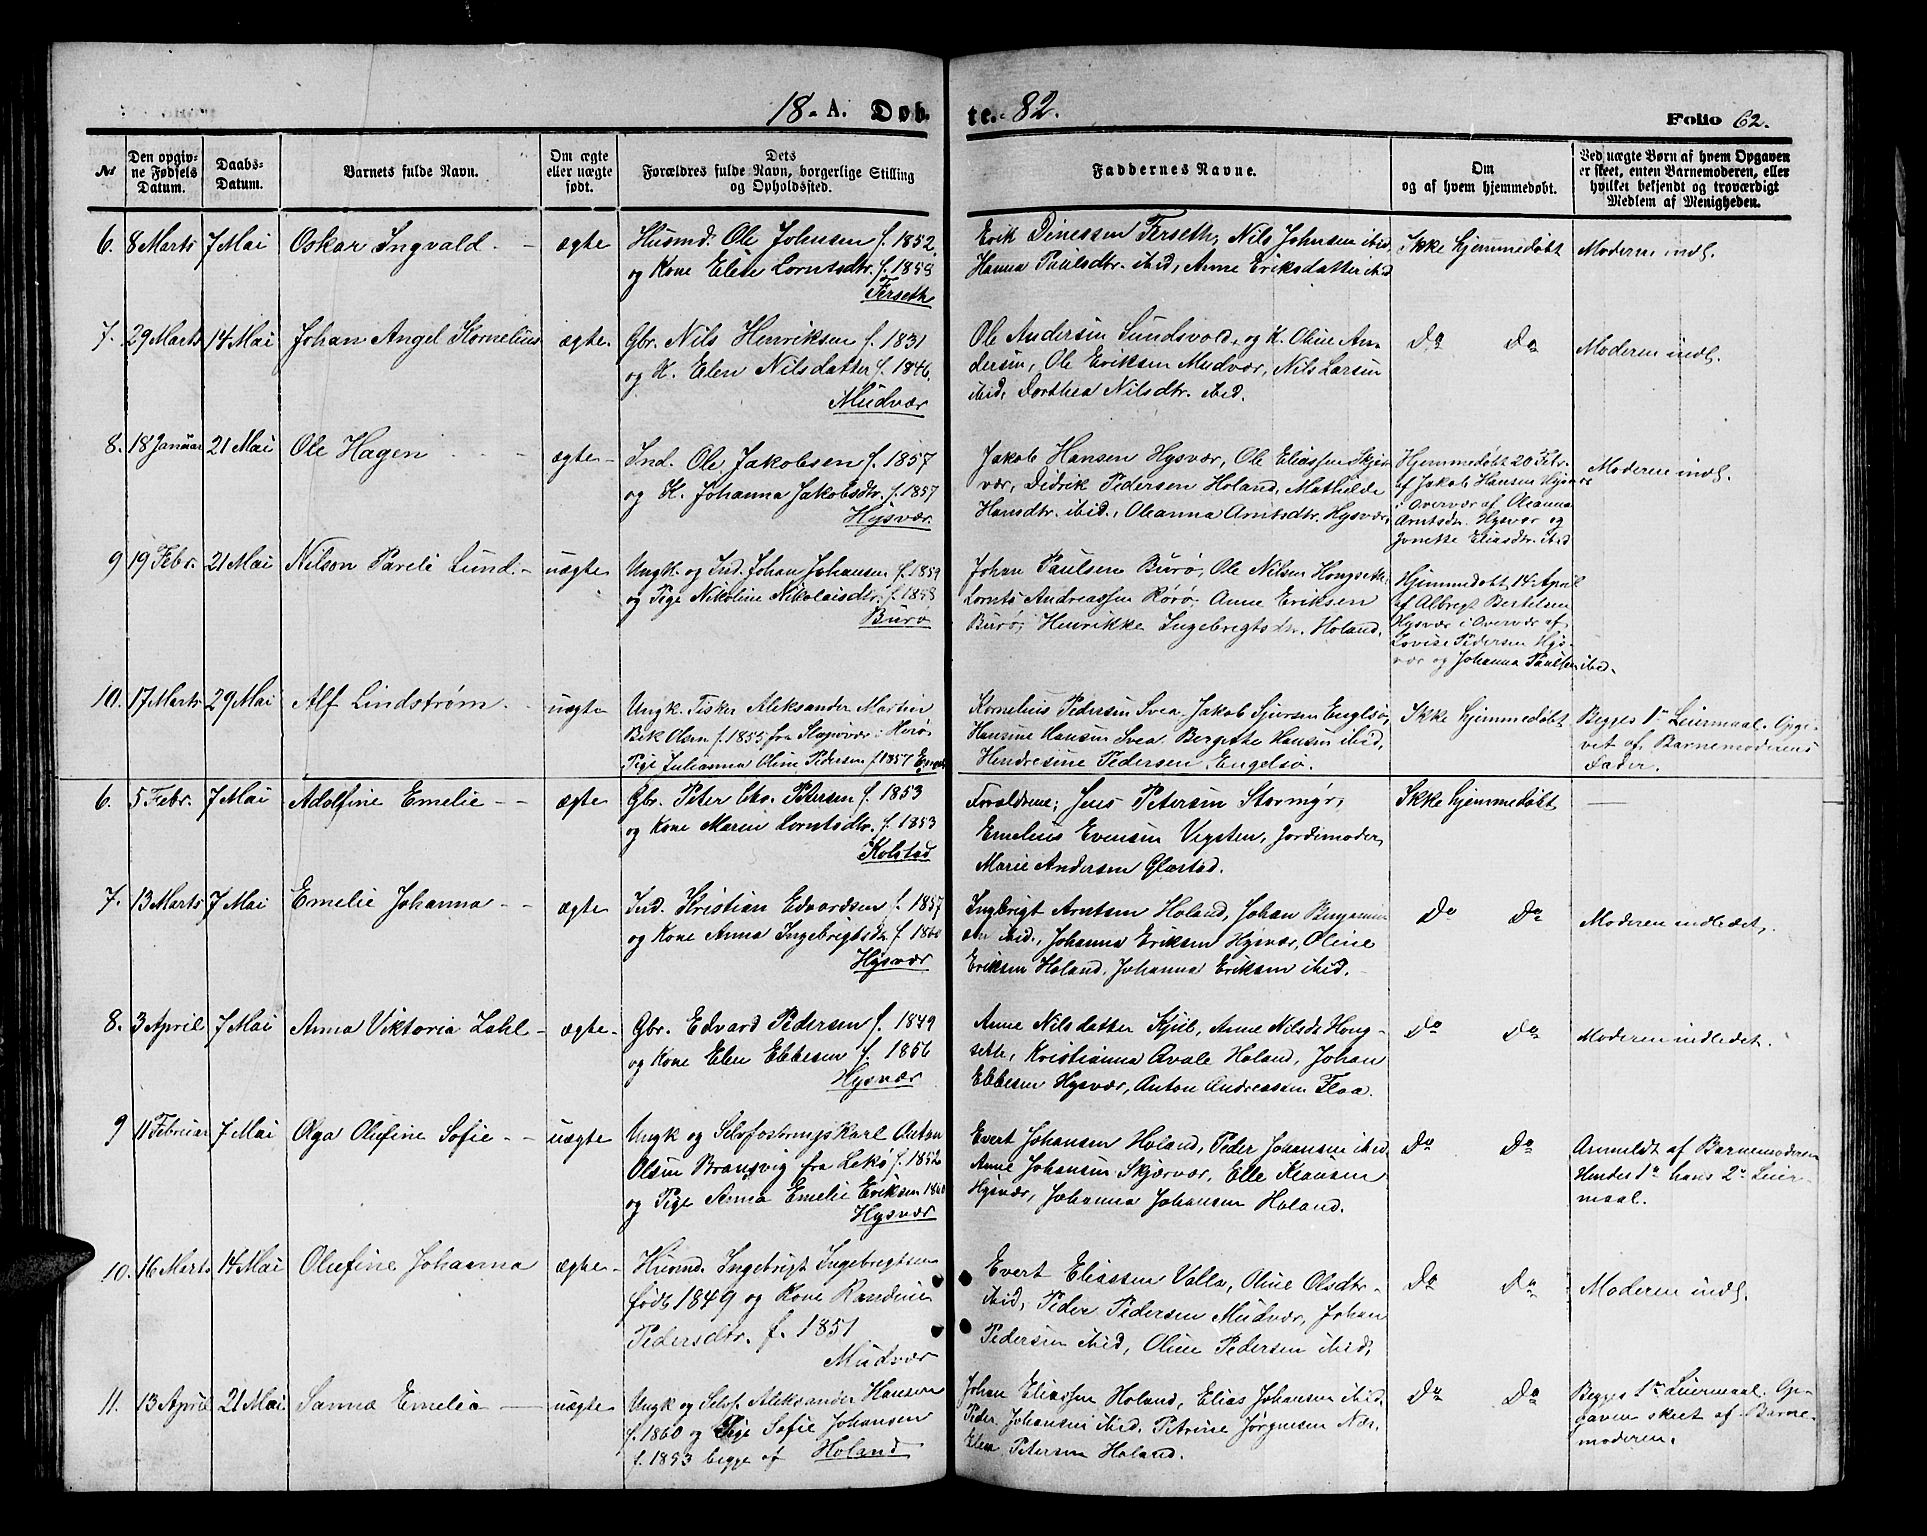 18 A. Døbte. 82.
Folio 62.
№
Den opgivne Fødsels Datum.
Daabs-Datum.
Barnets fulde Navn.
Om ægte eller uægte født.
Dets Forældres fulde Navn, borgerlige Stilling og Opholdssted.
Faddernes Navne.
Om og af hvem hjemmedøbt.
Ved uægte Børn af hvem Opgaven er skeet, enten Barnemoderen, eller hvilket bekjendt og troværdigt Medlem af Menigheden.
6. 8 Marts 7 Mai Oskar Ingvald - ægte
Husmd. Ole Johnsen f. 1852.
og Kone Elen Lorntsdtr. f. 1858
Ferseth
Erik Dinessen Ferseth, Nils Johnsen ibid,
Hanna Paulsdtr. ibid, Anne Eriksdatter ibid
Ikke hjemmedøbt
Moderen indl.
7. 29 Marts 14 Mai Johan Angel Kornelius ægte.
Gbr. Nils Henriksen f. 1831
og K. Elen Nilsdatter f. 1846.
Mudvær
Ole Andersen Sundsvold, og K. Oline An-
dersen, Ole Eriksen Mudvær, Nils Larsen
ibid, Dorthea Nilsdtr. ibid.
Do Do
Moderen indl.
8. 18 Januar 21 Mai Ole Hagen - ægte -
Ind. Ole Jakobsen f. 1857
og K. Johanna Jakobsdtr. f. 1857
Hysvær.
Jakob Hansen Hysvær, Ole Eliassen Skjær-
vær, Didrik Pedersen Holand, Mathilde
Hansdtr. ibid., Oleanna Arntsdtr. Hysvær,
Hjemmedøbt 20 Febr.
af Jakob Hansen Hysvære
i Overvær af Oleanna
Arntsdtr. Hysvær og
Eliasdtr. ibid
Moderen indl.
9 19 Febr. 21 Mai Nilson Pareli Lund. - uægte
Ungk. og Ind. Johan Johansen f. 1859
og Pige Nikoline Nikolaisdtr. f. 1858
Burø
Johan Paulsen Burø, Ole Nilsen Hongseth
Lornts Andreassen Rørø, Anne Eriksen
Burø, Henrikke Ingebrigtsdtr. Holand.
Hjemmedøbt 14 April
af Albregt Bertelsen
Hysvær i Overvær af
Lovise Pedersen Hys-
vær og Johanna Paulsen ibid.
10. 17 Marts 29 Mai Alf Lindstrøm - uægte
Ungk. Fisker Aleksander Martin
Bek Olsen f. 1855 fra i Herø,
Pige Julianna Oline Pedersen f. 1857
Kornelius Pedersen Svea, Jakob Engelsø,
Hansine Hansen Svea, Bergette Hansen ibid,
Hendresine Pedersen, Engelsø.
Ikke hjemmedøbt
Begges 1ste Leiermaal. Opgi-
vet af Barnemoderens
Fader.
6. 5 Febr. 7 Mai Adolfine Emelie - - ægte
Gbr. Peter Chr. Petersen f. 1853
og Kone Maren Lorntsdtr. f. 1853
Kolstad
Forældrene; Jens Petersen Stormyr,
Emelius Evensen Vegsten, Jordemoder
Marie Andersen Glastad.
Ikke hjemmedøbt
—
7. 13 Marts 7 Mai Emelie Johanna - - ægte
Ind. Kristian Edvardsen f. 1857
og Kone Anna Ingebrigtsdtr. f. 1860
Hysvær
Ingbrigt Arntsen Holand, Johan Benjamin
sen ibid., Johanna Eriksen Hysvær, Oline
Eriksen Holand, Johanna Eriksen ibid.
Do Do
Moderen indledet,.
8. 3 April 7 Mai Anna Viktoria Zahl - ægte -
Gbr. Edvard Pedersen f. 1849
og Kone Elen Ebbesen f. 1856
Hysvær
Anne Nilsdatter Kjul, Anne Nilsdt Hong-
sette, Kristianna Avale Holand, Johan
Ebbesen Hysvær, Anton Andreassen Floa.
Do Do
Moderen indledet.
9 11 Februar 7 Mai Olga Olufine Sofie - - uægte
Ungk og Selvfostrings Karl Anton
Olsen Bransvig fra Lekø f. 1852
og Pige Anna Emelie Eriksen 1860
Hysvær
Evert Johansen Holand, Peder Johansen ibid,
Anne Johansen Skjærvær, Elle Klausen
Hysvær, Johanna Johansen Holand.
Do Do
Anmeldt af Barnemoderen
Hendes 1ste hans 2de Leier-
maal.
10. 16 Marts 14 Mai Olufine Johanna ægte -
Husmd. Ingebrigt Ingebrigtsen
født 1849 og Kone Randine
Pedersdtr. f. 1851
Mudvær
Evert Eliassen Valla, Oline Olsdtr -
ibid, Peder Pedersen Mudvær, Johan
Pedersen ibid, Oline Pedersen ibid,
Do Do
Moderen indl.
11. 13 April 21 Mai Sanna Emelie - uægte
Ungk og Selvf. Aleksander Hansen
f. 1860 og Pige Sofie Johansen
f. 1853 begge af Holand
Johan Eliassen Holand, Elias Johansen ibid.
Peder Johansen ibid. Petrine Jørgensen Nær.
Elen Petersen Holand.
Do Do
Begges 1ste Leiermaal. Op-
gaven skeet af Barne-
moderen.